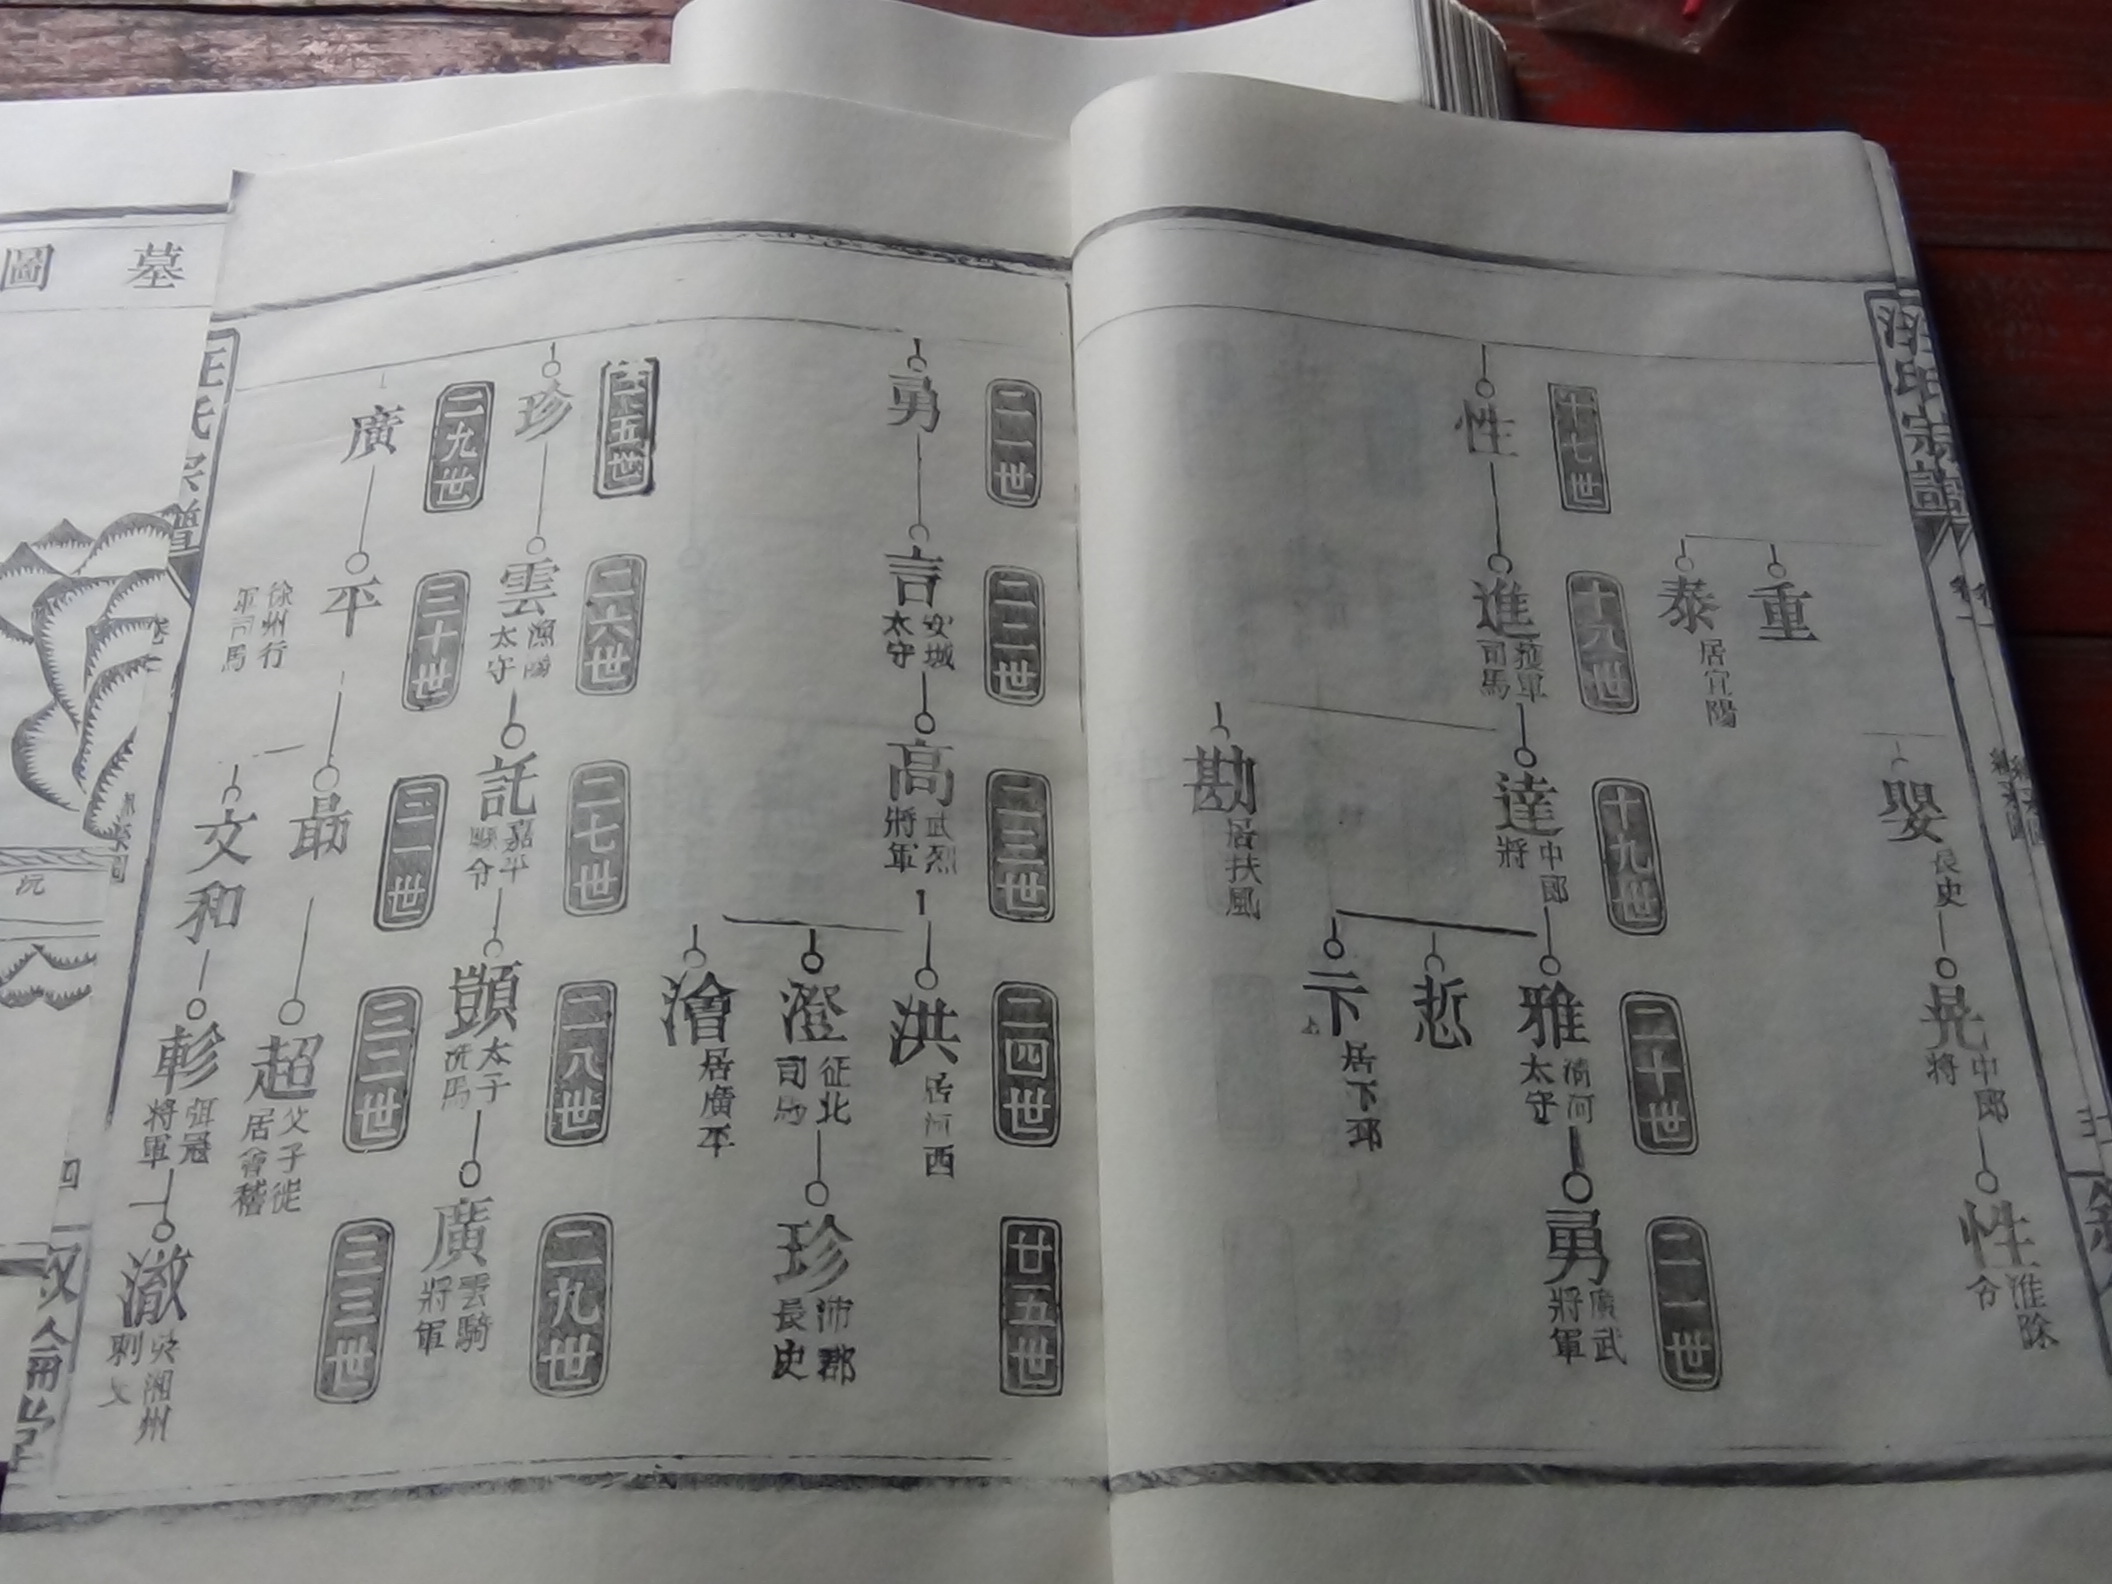 汪氏宗譜
嬰
長史
晃
中郎
將
性
淮除
令
重
泰
居宜陽
十七世
十八世
十九世
二十世
二一世
性
進
護軍
司馬
達
中郎
將
雅
清河
太守
勇
廣武
將軍
悊
下
居下邳
勘
居扶風
二一世
二二世
二三世
二四世
廿五世
勇
言
安城
太守
高
武烈
將軍
洪
居河西
澄
征北
司馬
珍
沛郡
長史
澮
居廣平
廿五世
二六世
二七世
二八世
二九世
珍
雲
漁陽
太守
託
嘉平
縣令
顗
太子
洗馬
廣
雲騎
將軍
二九世
三十世
三一世
三二世
三三世
廣
平
徐州行
軍司馬
勗
超
父子徙
居會稽
文和
軫
冠
將軍
澈
湘州
刺
汪氏宗譜
墓圖